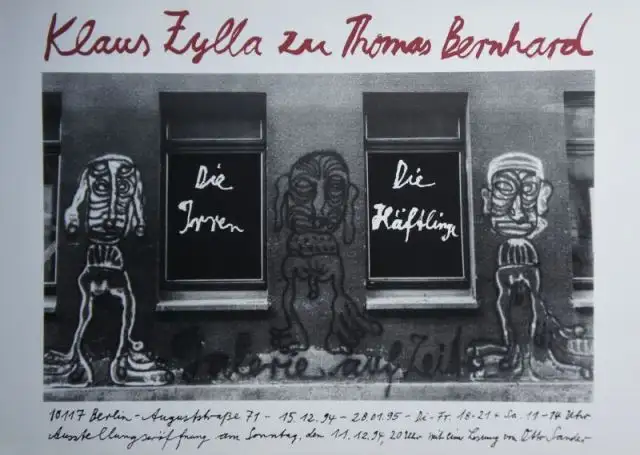 Klaus Zylla zu Thomas Bernhard
Die
Irren
Die
Häftlinge
Galerie auf Zeit
10117 Berlin - Auguststraße 71 - 15.12.94 - 28.01.95 - Di-Fr. 18-21 + Sa. 11-14 Uhr
Ausstellungseröffnung am Sonntag, den 11.12.94, 20 Uhr mit einer Lesung von Otto Sander